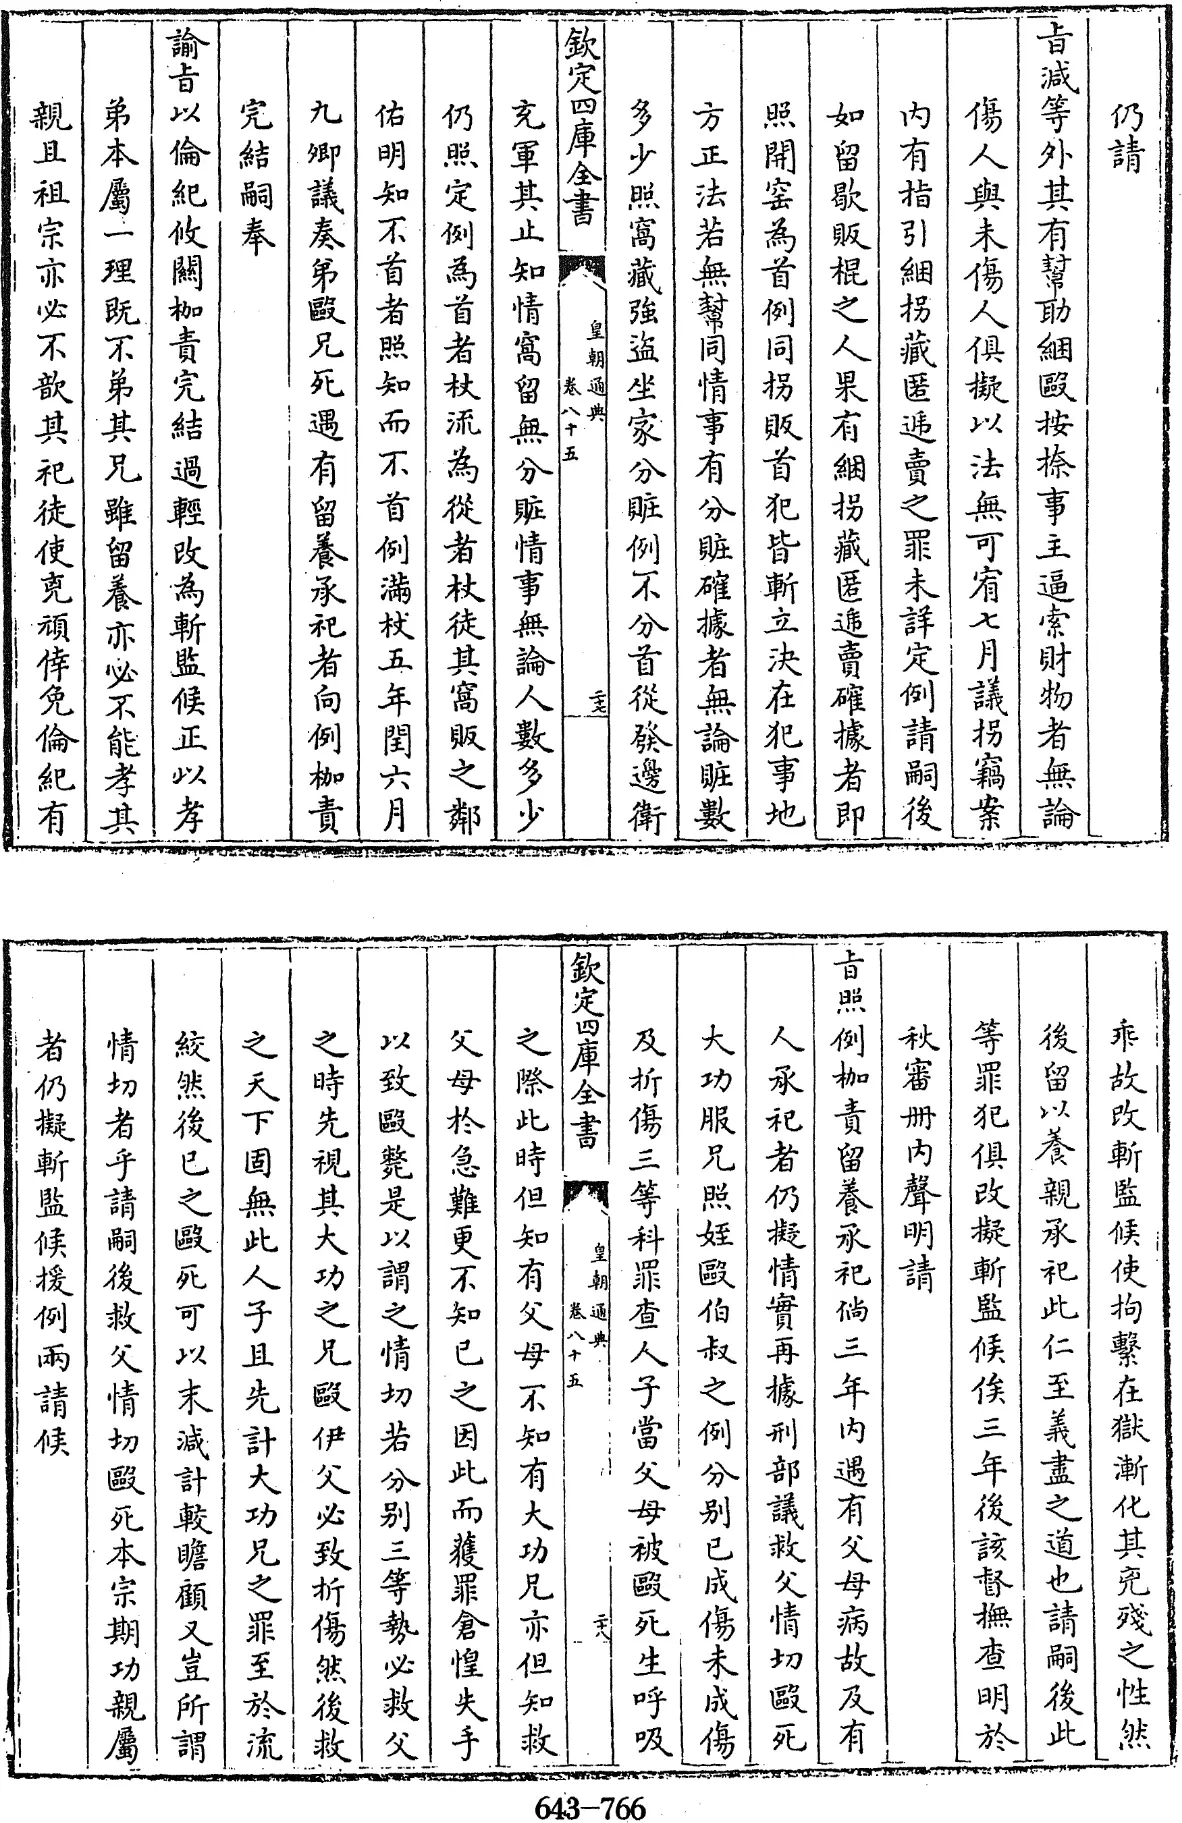 仍請
㫖減等外其有幫助綑毆按捺事主逼索財物者無論
傷人與未傷人俱擬以法無可宥七月議拐竊案
内有指引綑拐藏匿逓賣之罪未詳定例請嗣後
如留歇販棍之人果有綑拐藏匿逓賣確據者即
照開窑為首例同拐販首犯皆斬立決在犯事地
方正法若無幫同情事有分贓確據者無論贓數
多少照窩藏強盗坐家分贓例不分首從發邊衛
欽定四庫全書
皇朝通典
卷八十五
二七
充軍其止知情窩留無分贓情事無論人數多少
仍照定例為首者杖流為從者杖徒其窩販之鄰
佑明知不首者照知而不首例滿杖五年閏六月
九卿議奏弟毆兄死遇有留養承祀者向例枷責
完結嗣奉
諭㫖以倫紀攸關枷責完結過輕改為斬監候正以孝
弟本屬一理既不弟其兄雖留養亦必不能孝其
親且祖宗亦必不歆其祀徒使兇頑倖免倫紀有
乖故改斬監候使拘繫在獄漸化其兇殘之性然
後留以養親承祀此仁至義盡之道也請嗣後此
等罪犯俱改擬斬監候俟三年後該督撫查明於
秋審册内聲明請
㫖照例枷責留養承祀倘三年内遇有父母病故及有
人承祀者仍擬情實再據刑部議救父情切毆死
大功服兄照姪毆伯叔之例分别已成傷未成傷
及折傷三等科罪查人子當父母被毆死生呼吸
欽定四庫全書
皇朝通典
卷八十五
二八
之際此時但知有父母不知有大功兄亦但知救
父母於急難更不知已之因此而獲罪倉惶失手
以致毆斃是以謂之情切若分别三等勢必救父
之時先視其大功之兄毆伊父必致折傷然後救
之天下固無此人子且先計大功兄之罪至於流
絞然後已之毆死可以末減計較瞻顧又豈所謂
情切者乎請嗣後救父情切毆死本宗期功親屬
者仍擬斬監候援例兩請候
643-766